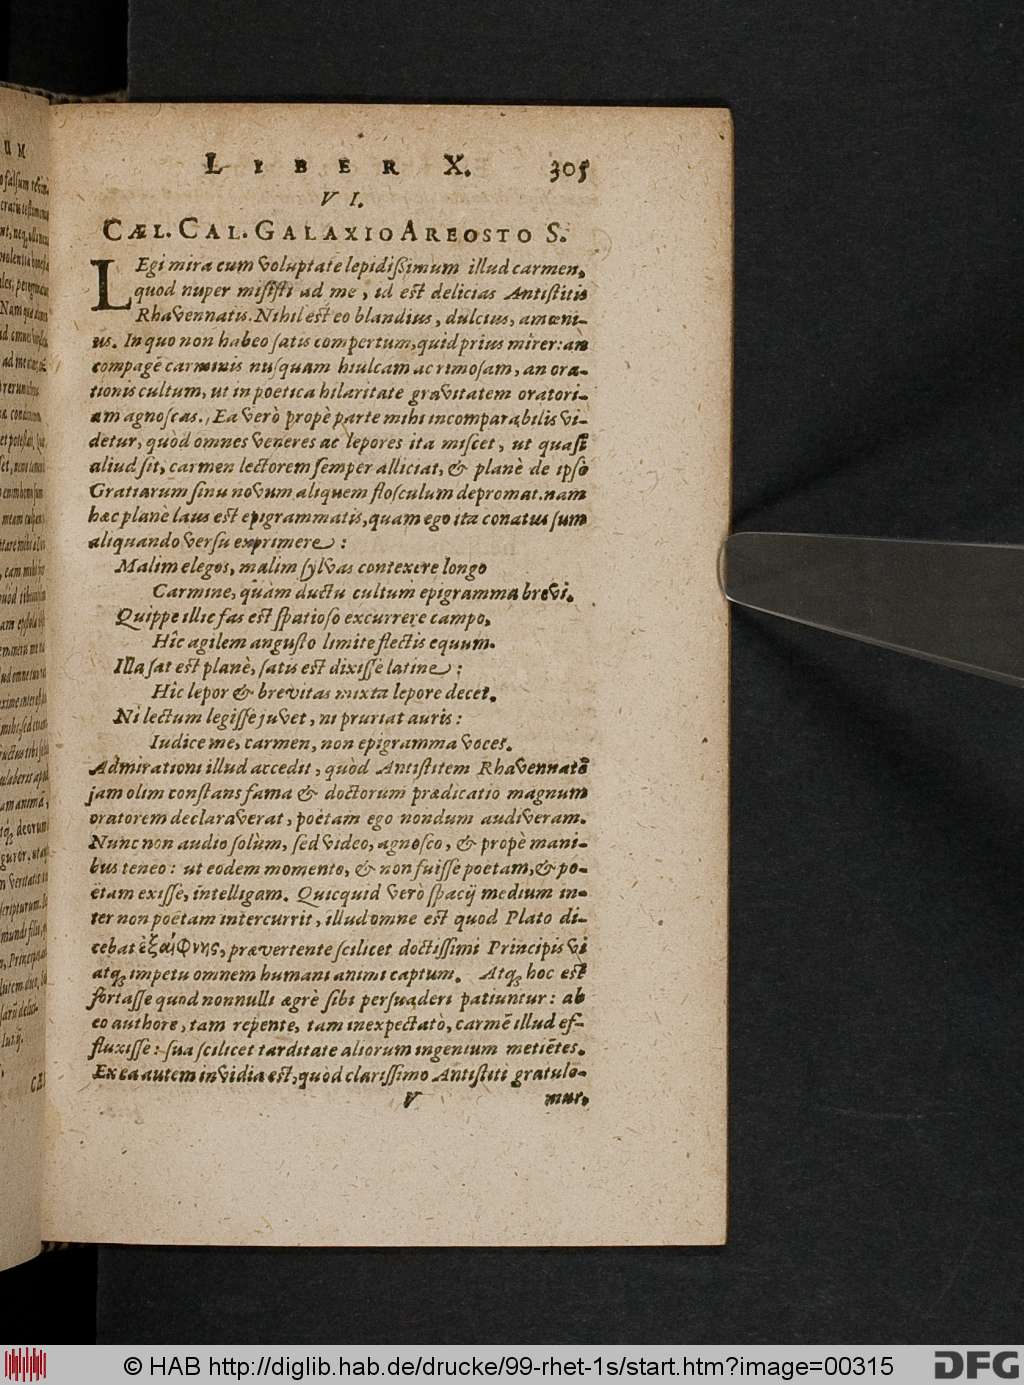 LIBER X. 305
VI.
CÆL. CAL. GALAXIO AREOSTO S.
LEgi mira cum voluptate lepidißimum illud carmen,
quod nuper misisti ad me, id est delicias Antistitis
Rhavennatis. Nihil est eo blandius, dulcius, amœni-
us. In quo non habeo satis compertum, quid prius mirer: an
compagē carminis nusquam hiulcam ac rimosam, an ora-
tionis cultum, ut in poetica hilaritate gravitatem oratori-
am agnoscas. Ea verò propè parte mihi incomparabilis vi-
detur, quòd omnes veneres ac lepores ita miscet, ut quasi
aliud sit, carmen lectorem semper alliciat, & planè de ipso
Gratiarum sinu novum aliquem flosculum depromat. nam
hæc planè laus est epigrammatis, quam ego ita conatus sum
aliquando versu exprimere:
Malim elegos, malim sylvas contexere longo
Carmine, quàm ductu cultum epigramma brevi.
Quippe illic fas est spatioso excurrere campo,
Hîc agilem angusto limite flectis equum.
Illa sat est planè, satis est dixisse latine:
Hîc lepor & brevitas nuxta lepore decet.
Ni lectum legisse juvet, ni pruriat auris:
Iudice me, carmen, non epigramma voces.
Admirationi illud accedit, quòd Antistitem Rhavennatē
jam olim constans fama & doctorum prædicatio magnum
oratorem declaraverat, poëtam ego nondum audiveram.
Nunc non audio solùm, sed video, agnosco, & propè mani-
bus teneo: ut eodem momento, & non fuisse poetam, & po-
ëtam exisse, intelligam. Quicquid verò spacij medium in-
ter non poëtam intercurrit, illud omne est quod Plato di-
cebat ἐξαίφνης, prævertente scilicet doctissimi Principis vi
atq; impetu omnem humani animi captum. Atq; hoc est
fortasse quod nonnulli ægrè sibi persuaderi patiuntur: ab
eo authore, tam repente, tam inexpectatò, carmē illud ef-
fluxisse: sua scilicet tarditate aliorum ingenium metiētes.
Ex ea autem invidia est, quòd clarissimo Antistiti gratulo-
V mur,
© HAB http://diglib.hab.de/drucke/99-rhet-1s/start.htm?image=00315
DFG